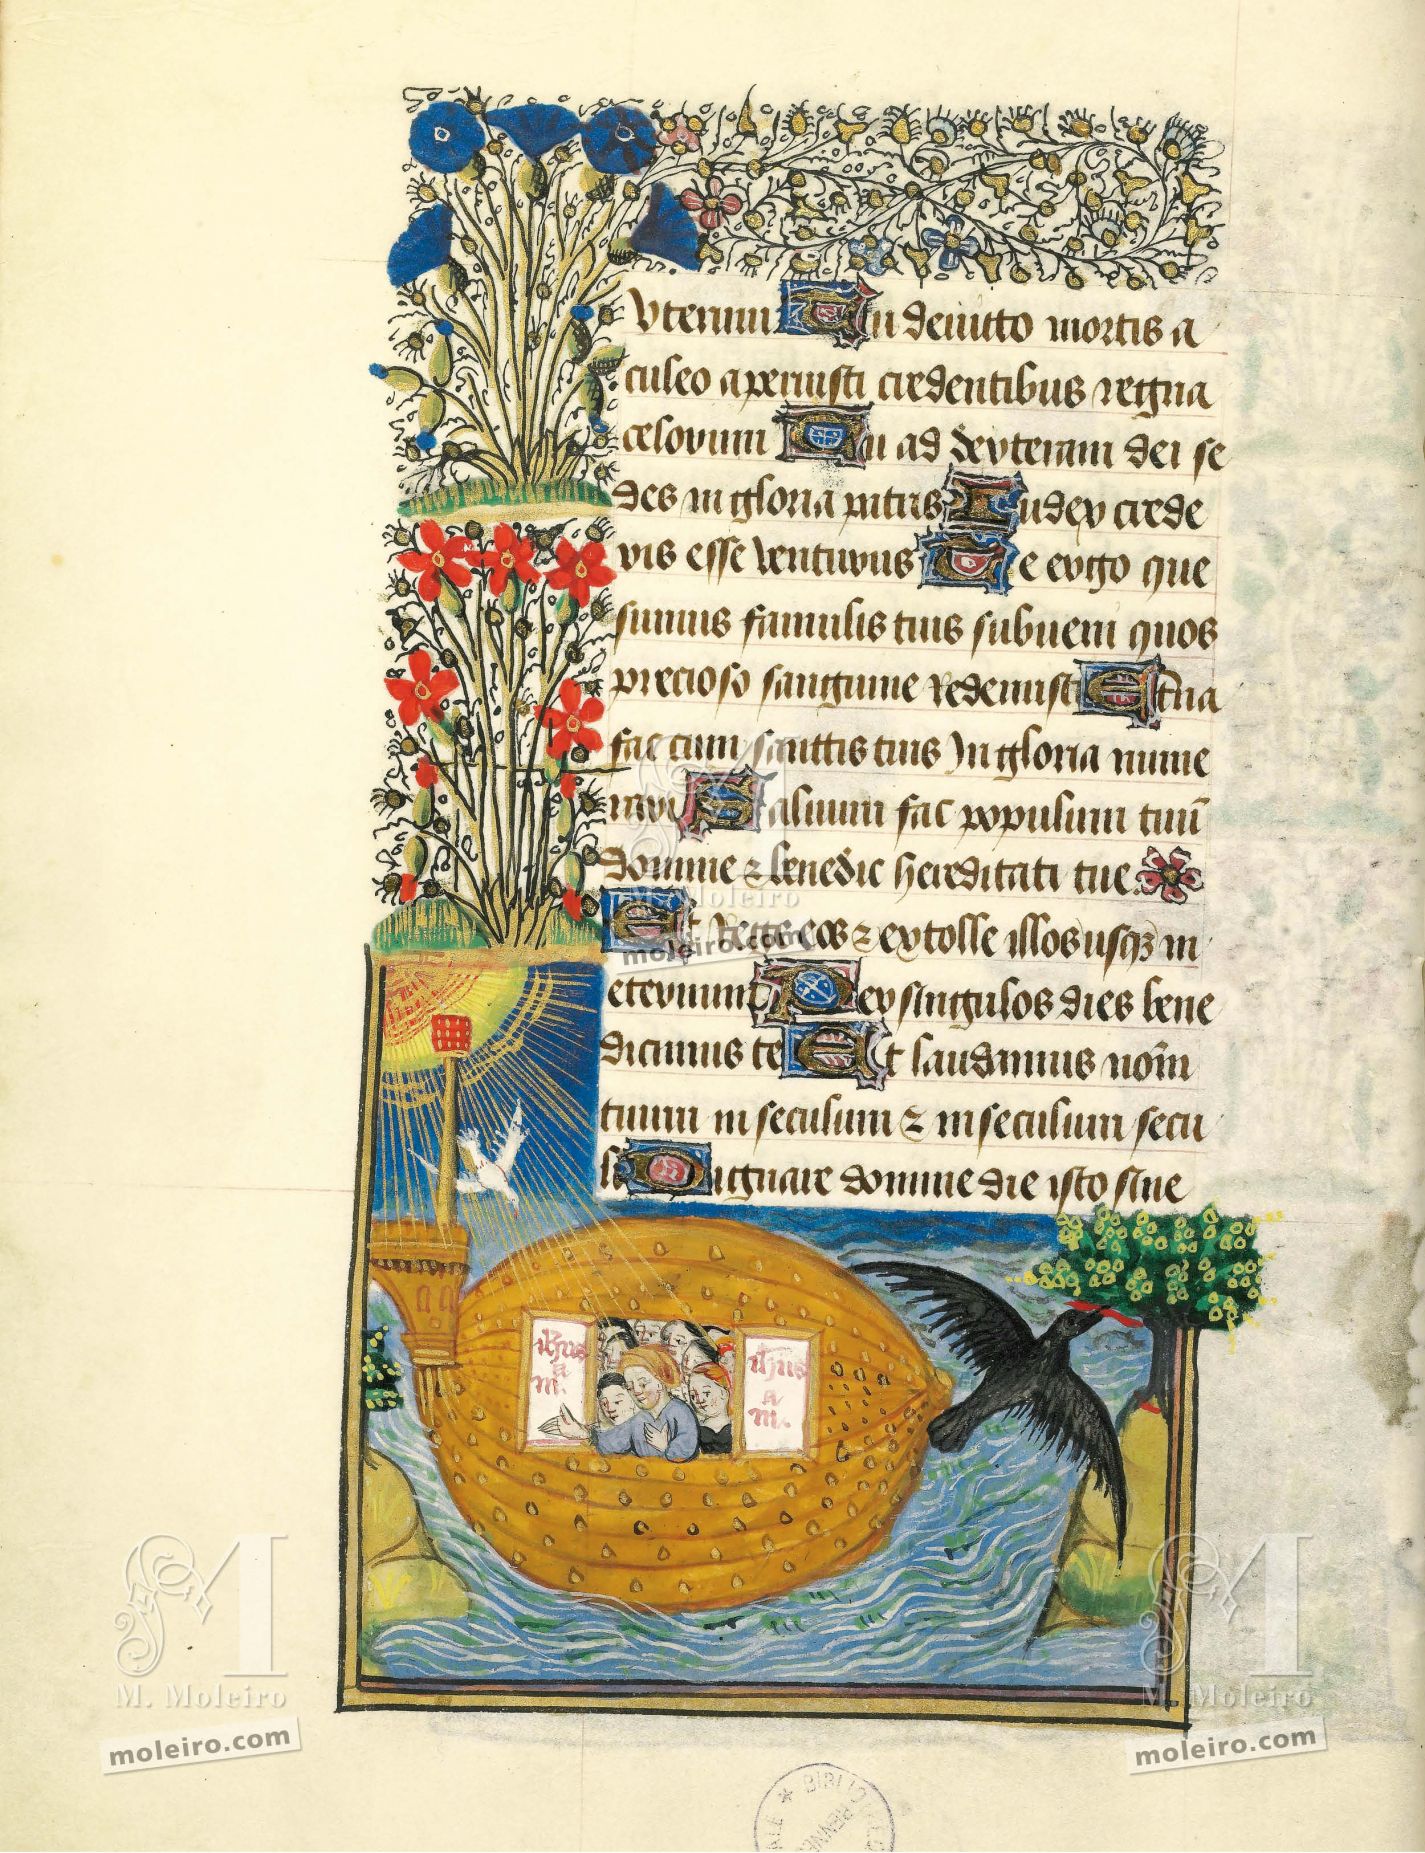 uterum Tu devicto mortis a
culeo aperuisti credentibus regna
celorum Tu ad dexteram dei se
des in gloria patris Iudex crede
ris esse venturus Te ergo que
sumus famulis tuis subveni quos
precioso sanguine redemisti Eterna
fac cum sanctis tuis in gloria nume
rari Salvum fac populum tuū
domine & benedic hereditati tue
Et rege eos & extolle illos usq3 in
eternum Per singulos dies bene
dicimus te Et laudamus nom̄
tuum in seculum & in seculum secu
li Dignare domine die isto sine
ihus
a
m.
ihus
a
m.
M. Moleiro
moleiro.com
M. Moleiro
moleiro.com
M. Moleiro
moleiro.com